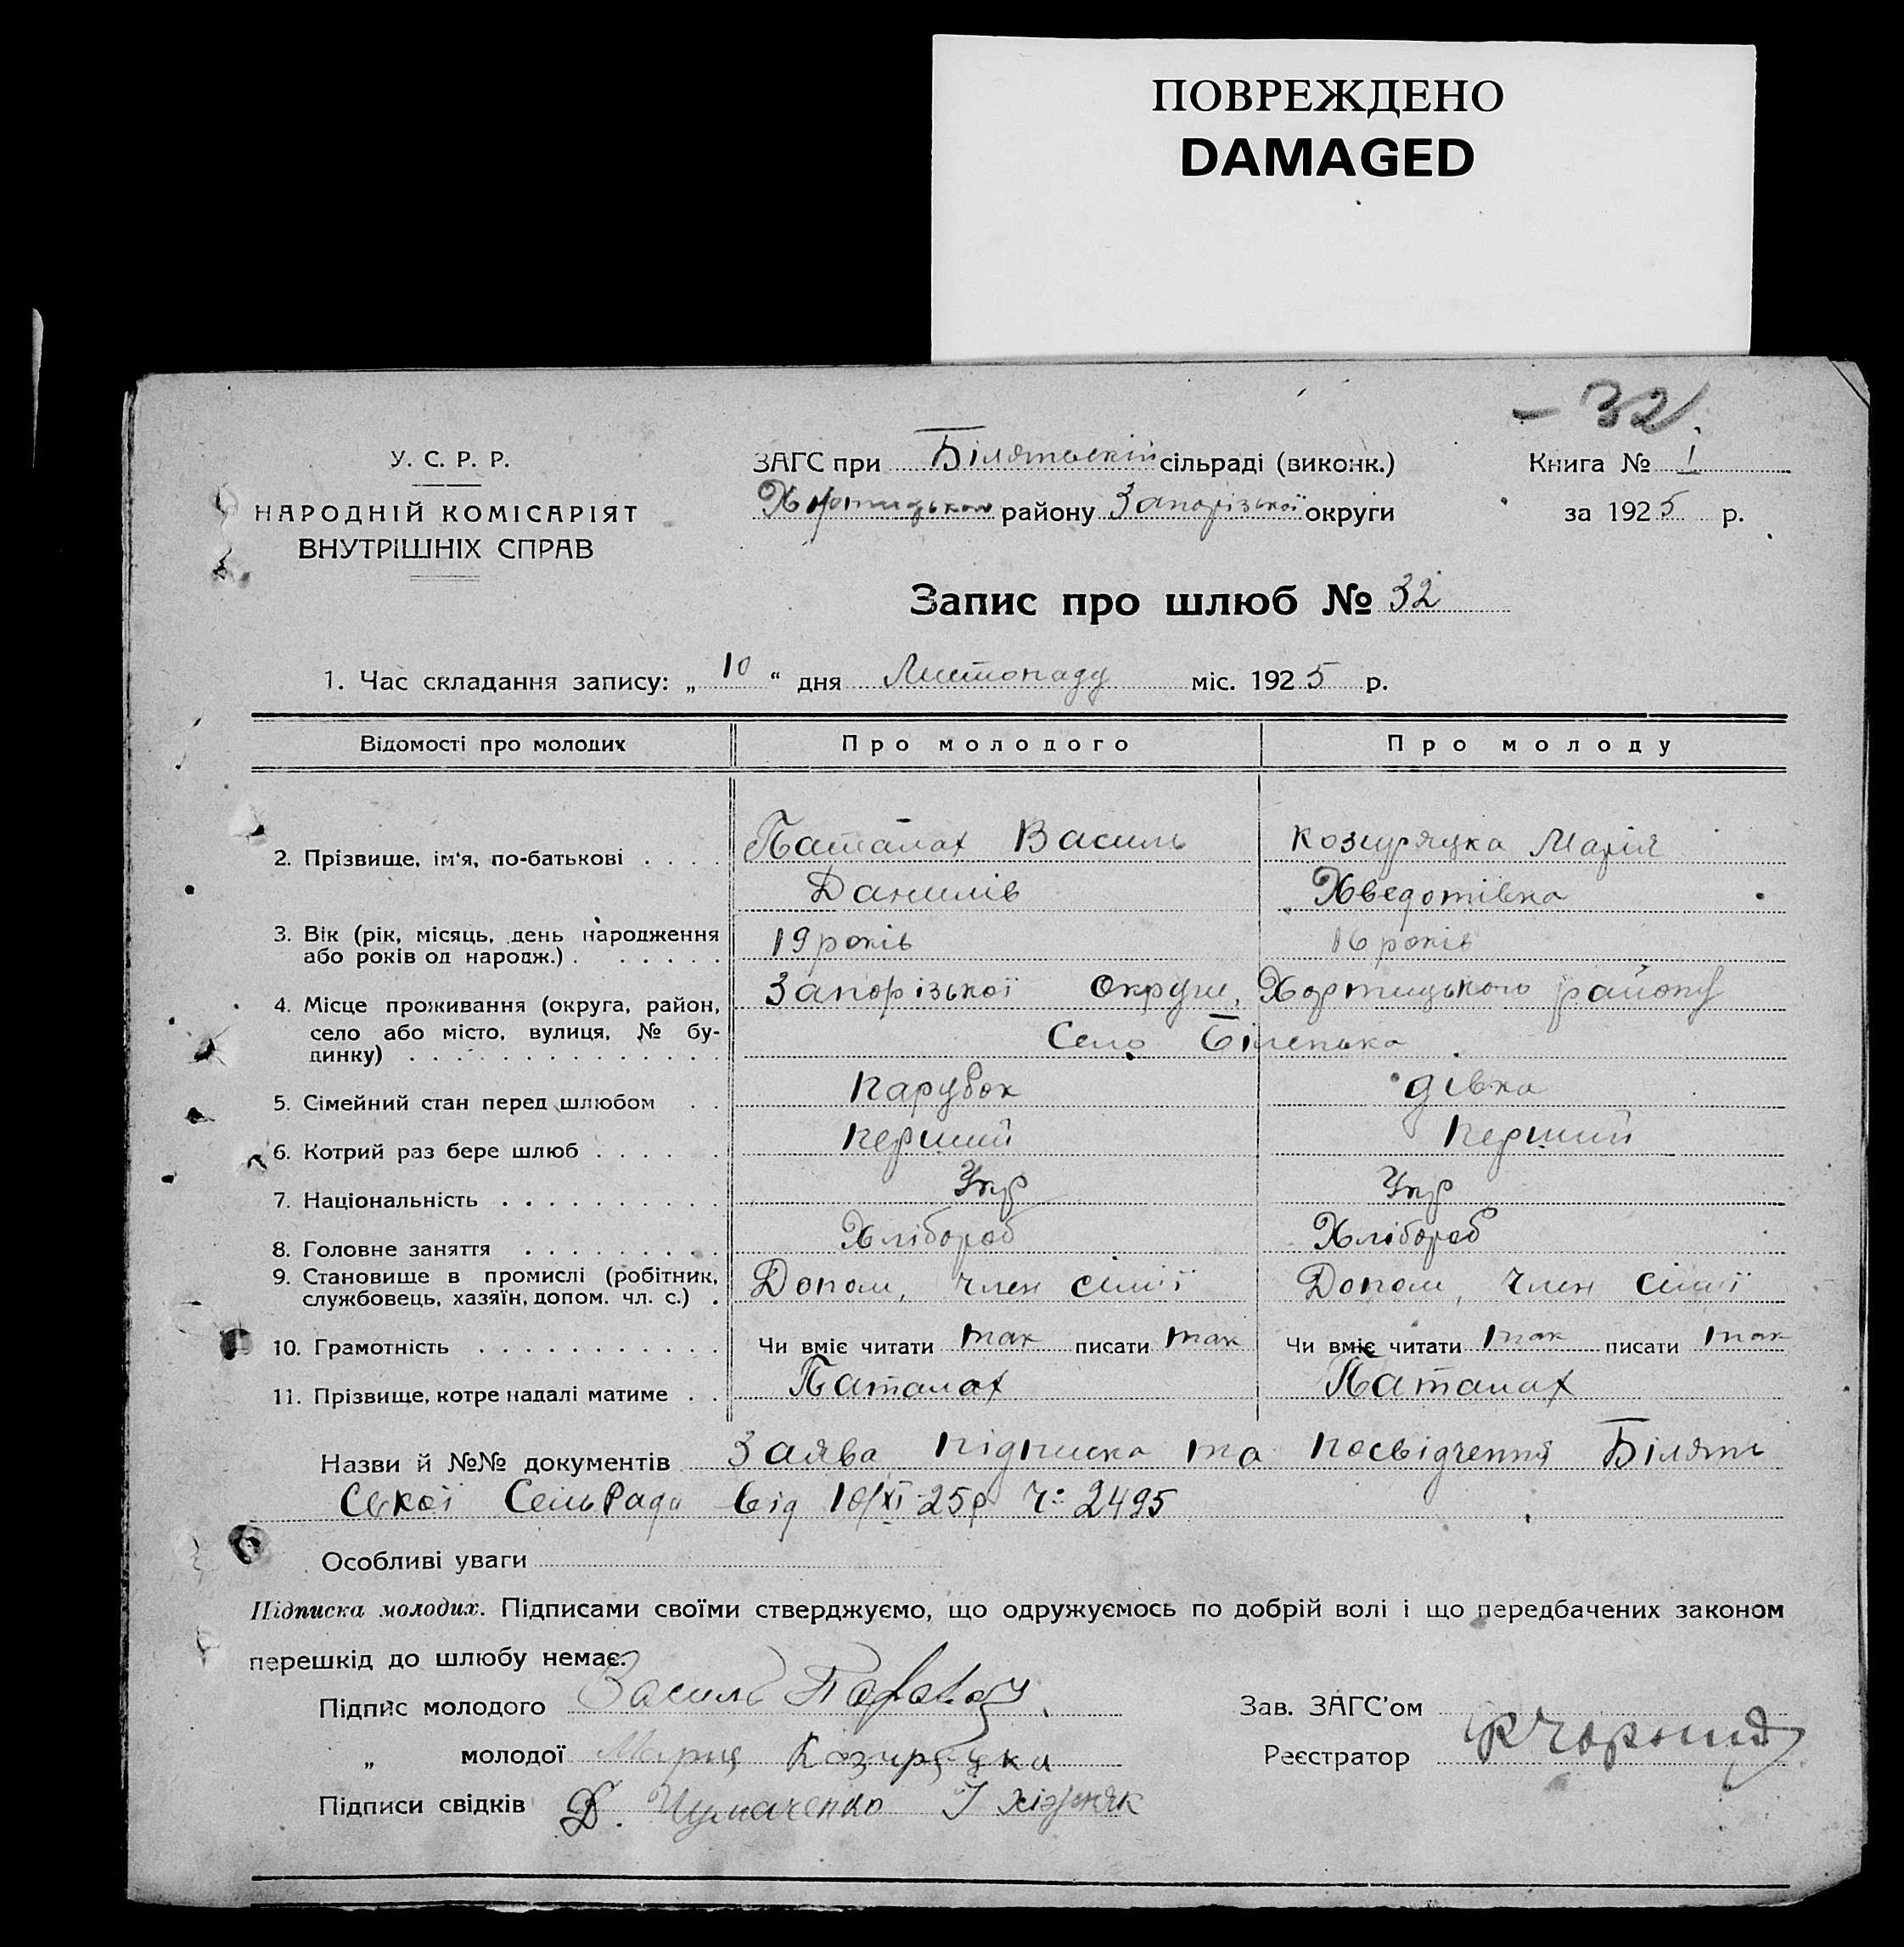 ПОВРЕЖДЕНО
DAMAGED
- 32
У. С. Р. Р.
НАРОДНІЙ КОМІСАРІЯТ
ВНУТРІШНІХ СПРАВ
ЗАГС при Білятьскій сільраді (виконк.)
Хортицького району Запорізької округи
Книга № I
за 1925 р.
Запис про шлюб № 32
1. Час складання запису: „ 10 “ дня Листопаду міс. 1925 р.
Відомості про молодих Про молодого Про молоду
2. Прізвище, ім'я, по-батькові . . . . Паталах Василь Марія
Данилів Хведотівна
3. Вік (рік, місяць, день народження 19 років 16 років
або років од народж.) . . . . . .
4. Місце проживання (округа, район, Запорізької Округи, Хортицького району
село або місто, вулиця, № бу- Село Біленька
динку) . . . . . . . . . . . . . .
5. Сімейний стан перед шлюбом . . парубок дівка
6. Котрий раз бере шлюб . . . . . . перший перший
7. Національність . . . . . . . . . . Укр Укр
8. Головне заняття . . . . . . . . . Хлібороб Хлібороб
9. Становище в промислі (робітник, Допом, член сімії Допом, член сімії
службовець, хазяїн, допом. чл. с.) .
10. Грамотність . . . . . . . . . . . Чи вміє читати так писати так Чи вміє читати так писати так
11. Прізвище, котре надалі матиме . . Паталах Паталах
Назви й №№ документів Заява підписка та посвідчення Білять
Ської СельРади від 10/XI-25р Ч: 2495
Особливі уваги
Підписка молодих. Підписами своїми стверджуємо, що одружуємось по добрій волі і що передбачених законом
перешкід до шлюбу немає.
Підпис молодого Василь
„ молодої
Підписи свідків Ф. Чумаченко І Хіжняк
Зав. ЗАГС'ом
Реєстратор